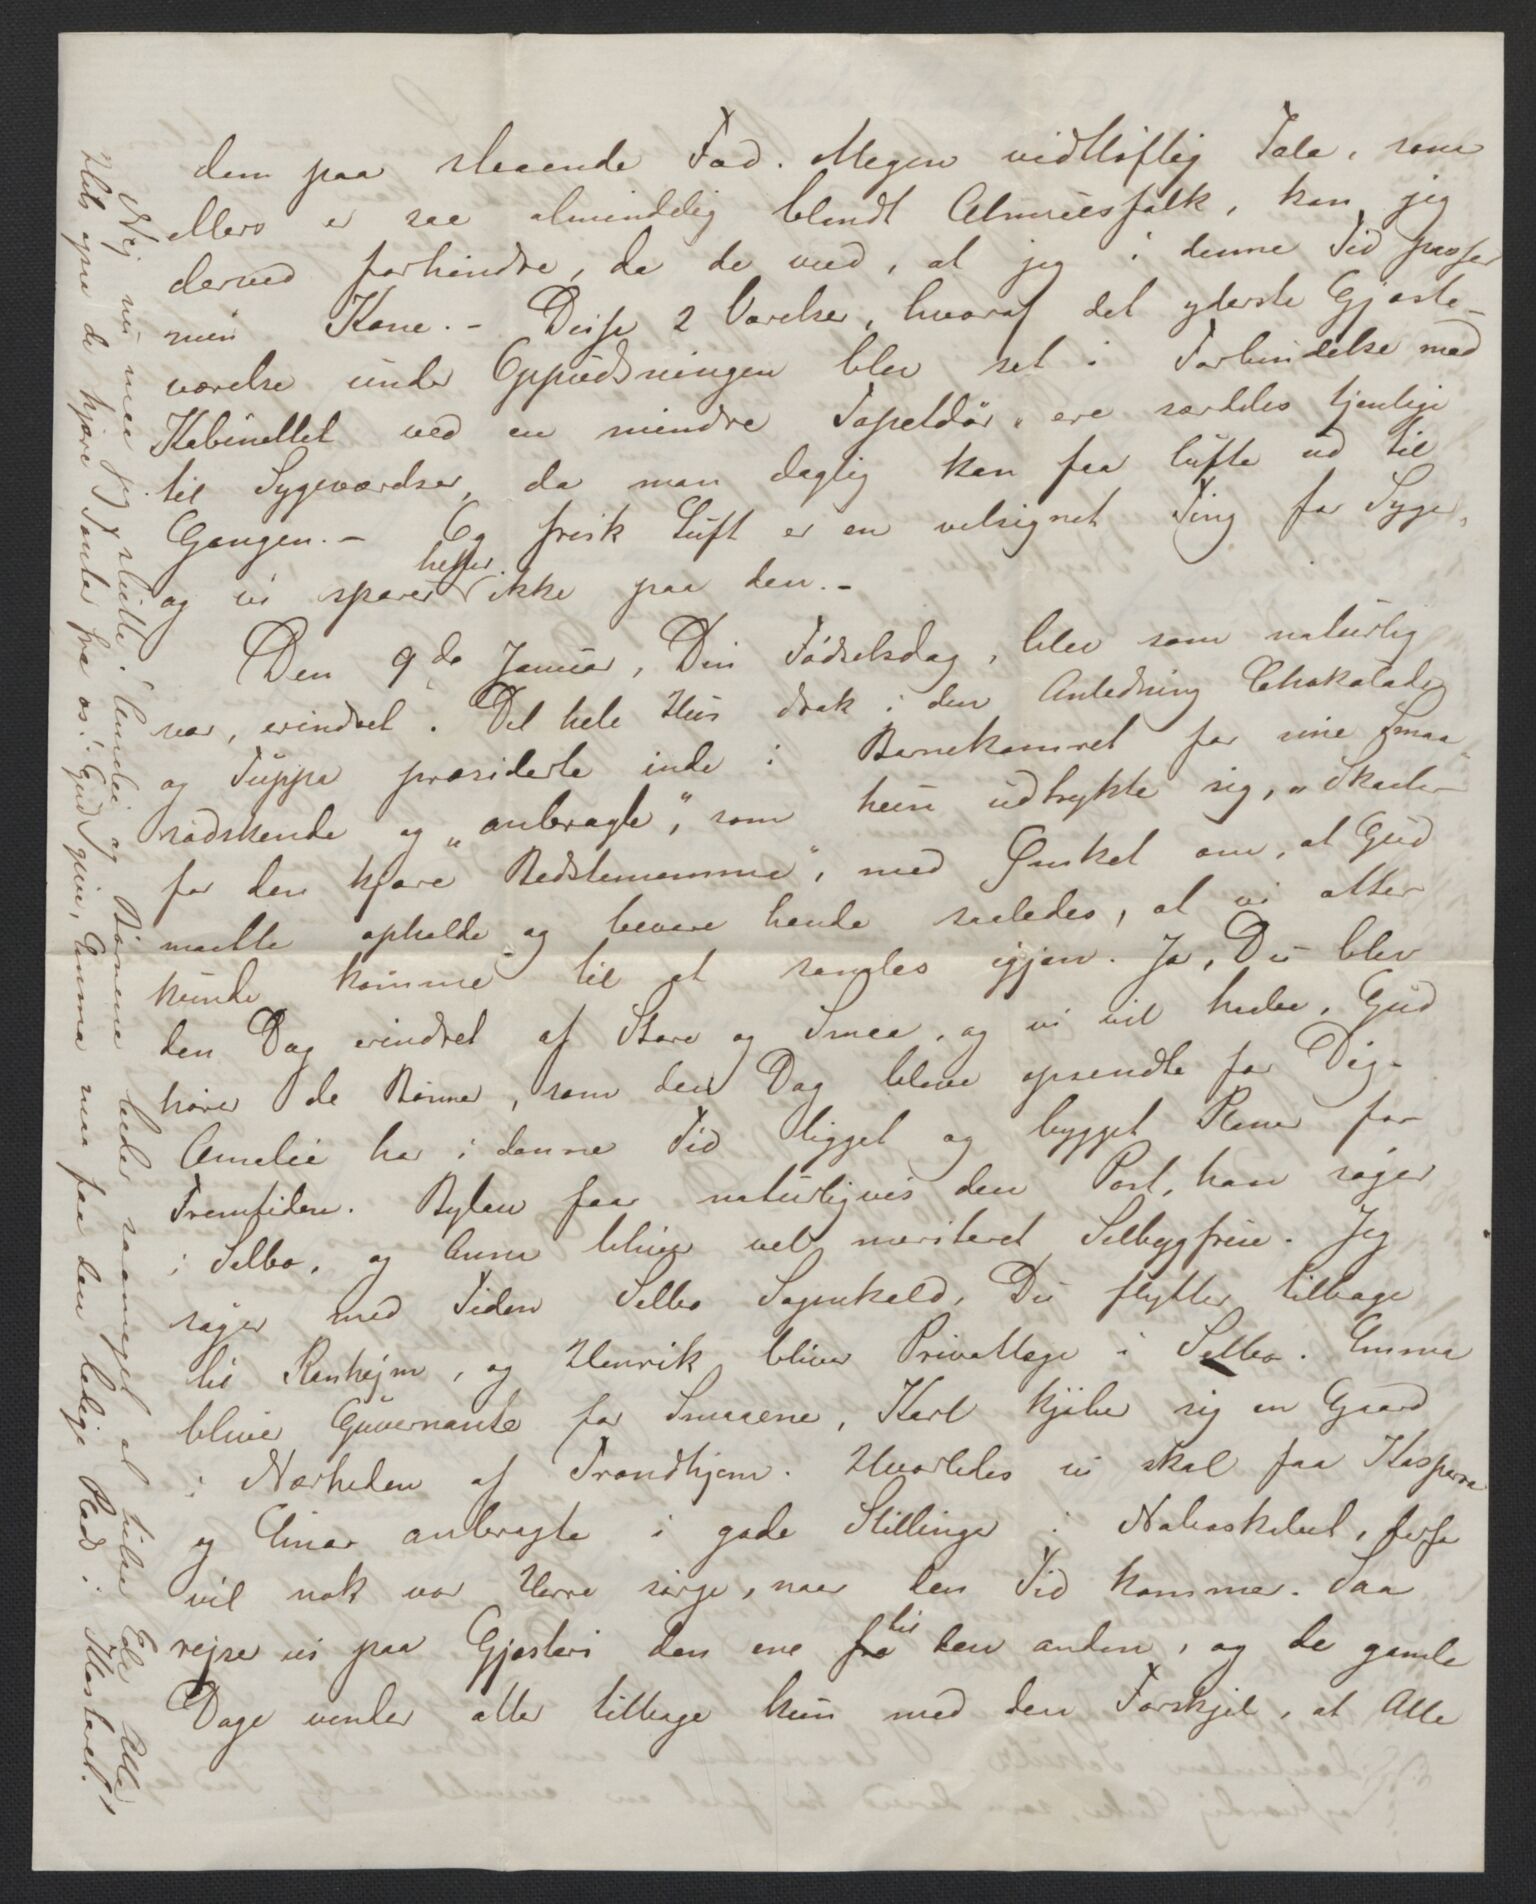 dem paa staaende Fod. Megen vidtløftig Tale, som
ellers er saa almindelig blandt Almuesfolk, kan jeg
derved forhindre, da de veed, at jeg i denne Tid passer
min Kone. – Disse 2 Værelser, hvoraf det yderste Gjæste-
værelse under Oppudsningen blev sat i Forbindelse med
Kabinettet ved en mindre Tapetdør, ere særdeles tjenlige
til Sygeværelser, da man daglig kan faa lufte ud til
Gangen. – Og frisk Luft er en velsignet Ting for Syge,
og vi sparer heller ikke paa den. –
Den 9de Januar, Din Fødselsdag, blev som naturlig
var, erindret. Det hele Hus drak i den Anledning Chokolade
og Tuppa præsiderte inde i Barnekamret for sine Smaa-
sødskende og „anbragte“, som hun udtrykte sig, „Skaaler
for den kjære Bedstemamma“, med Ønsket om, at Gud
maatte opholde og bevare hende saaledes, at vi atter
kunde komme til at samles igjen. Ja, Du blev
den Dag erindret af Store og Smaa, og vi vil haabe, Gud
hører de Bønner, som den Dag bleve opsendte for Dig.
Amelie har i denne Tid ligget og bygget Planer for
Fremtiden. Bylow faar naturligvis den Post, han søger
i Selbo, og Anna bliver vel meriteret Selbygfrue. Jeg
søger med Tiden Selbo Sognekald, Du flytter tilbage
til Ranhejm, og Henrik bliver Privatlæge i Selbo. Emma
bliver Guvernante for Smaaene, Karl kjøber sig en Gaard
i Nærheden af Trondhjem. Hvorledes vi skal faa Kaspara
og Einar anbragte i gode Stillinger i Naboskabet, derfor
vil nok vor Herre sørge, naar den Tid kommer. Saa
rejse vi paa Gjæsteri den ene til den anden, og de gamle
Dage vender atter tilbage kun med den Forskjel, at Alle
Nej nu maa jeg slutte. Amelie og Børnene beder saameget at hilse Eder Alle.
Hils ogsaa de kjære Tanter fra os. Gud give, Emma maa faa den ledige Plads i Klosteret.